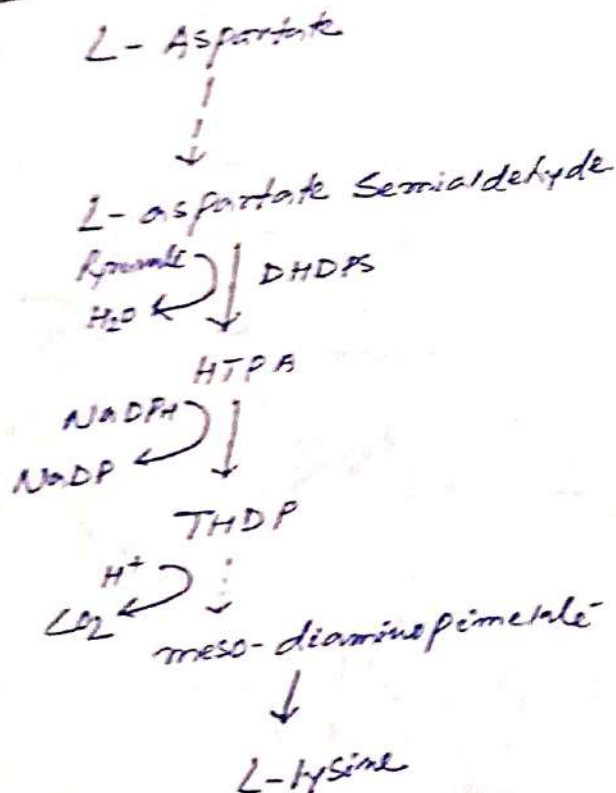 L- Aspartate
L- aspartate Semialdehyde
Pyruvate
DHDPS
H₂O
HTPA
NaDPH
NaDP
THDP
H⁺
CO₂
meso-diaminopimelate
L-lysine